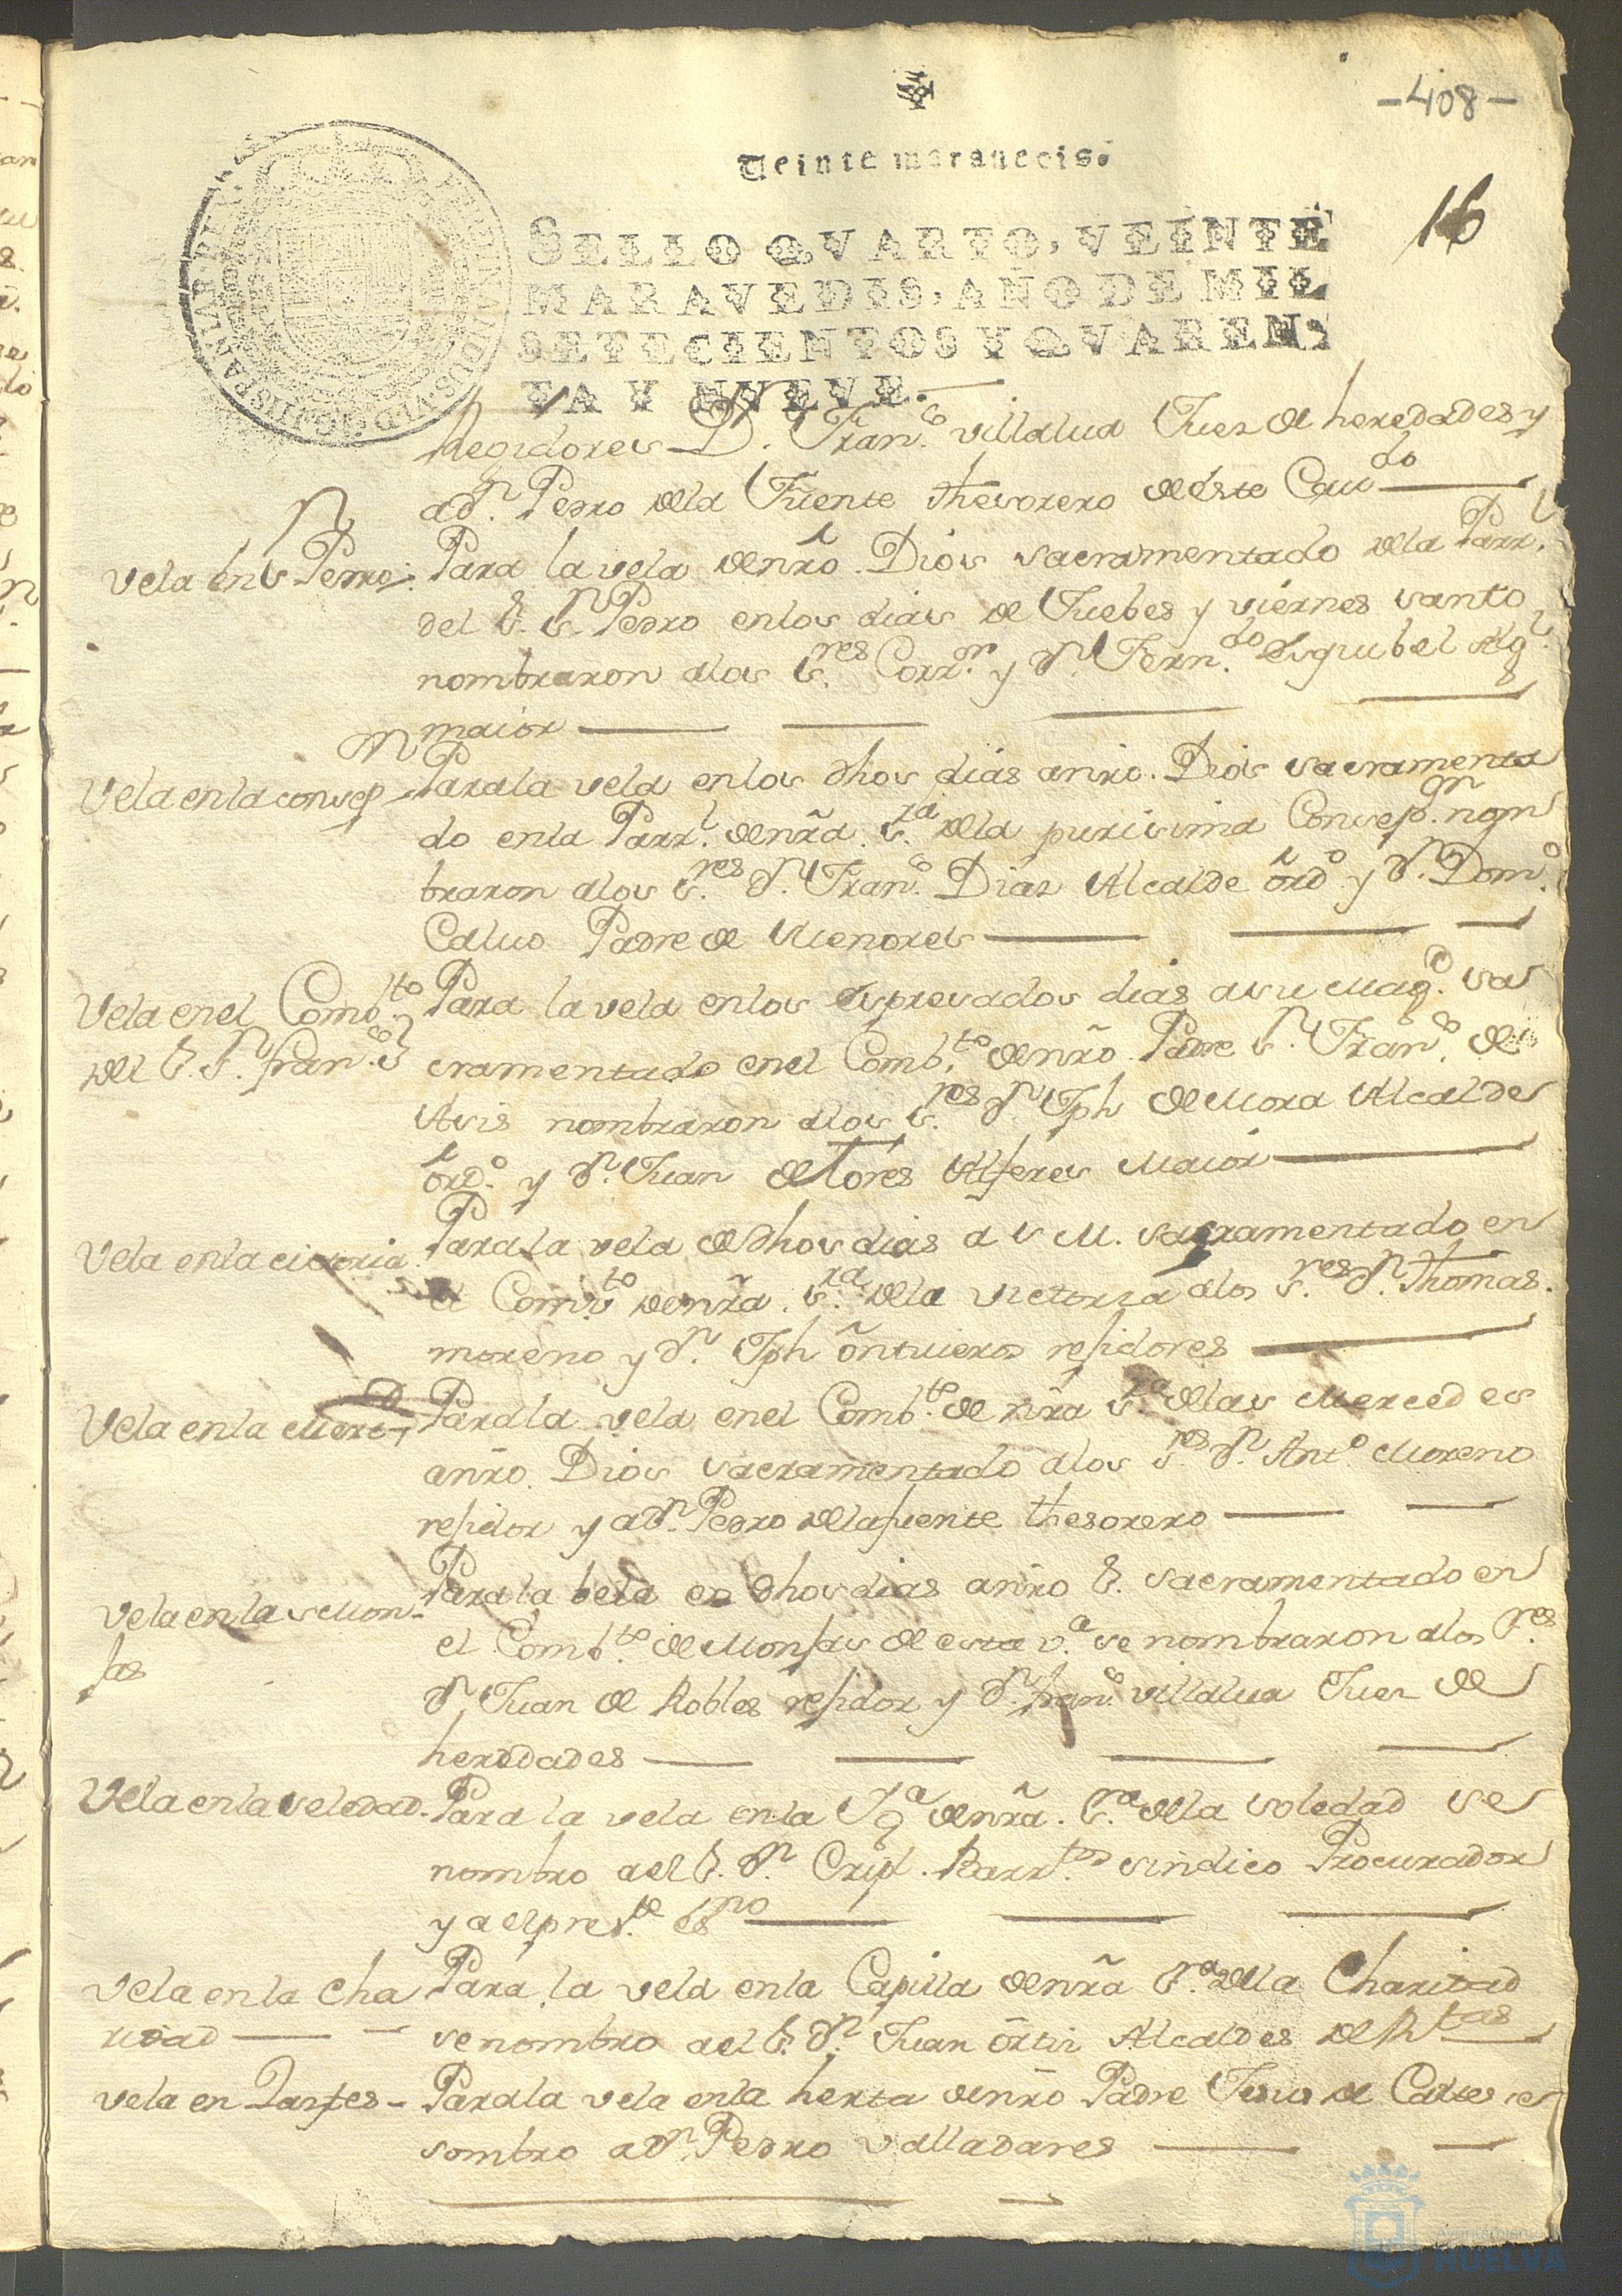 -408-
Veinte maravedis.
16
SELLO QVARTO, VEINTE
MARAVEDIS, AÑO DE MIL
SETECIENTOS Y QVAREN-
TA Y NVEVE.
Regidores D. Fran.co Villalua Juez de heredades y
a Dn. Pedro dela Fuente thesorero de este Cavdo
Vela en Sn Pedro
Para la vela de nro. Dios sacramentado dela Parrl.
del S. Sn. Pedro en los dias de Juebes y viernes santo
nombraron alos Sres. Corror. y Dn. Ferndo. Esquibel Algl.
maior
Vela en la consepn
Para la vela en los dhos dias a nro. Dios sacramenta
do en la Parrl. de nra. Sra. dela purisima Consepon. nom
braron alos Sres. Dn. Franco. Dias Alcalde ordo. y Dn. Domo.
Caluo Padre de Menores
Vela en el Combto
del S. Sn. franco
Para la vela en los espresados dias a su Magd. sa
cramentado en el Combto. de nro Padre Sn. Franco. de
Asis nombraron alos Sres. Dn. Jph de Mora Alcalde
ordo. y Dn. Juan de Tores Alferes Maior
Vela en la victoria
Para la vela de dhos dias a S M. sacramentado en
el Combto de nra. Sra. dela victoria alos Sres. Dn. Thomas
moreno y Dn. Jph ontiueros residores
Vela en la Mercd
Para la vela en el Combto. de nra Sra. delas Mercedes
a nro. Dios sacramentado alos Sres. Dn. Anto. Moreno
residor y a Dn. Pedro dela fuente thesorero
Vela en las Mon-
jas
Para la bela en dhos dias a nro S. sacramentado en
el Combto. de Monjas de esta va. se nombraron alos Sres.
Dn Juan de Robles residor y Dn. franco. villalua Juez de
heredades
Vela en la soledad
Para la vela en la Yga de nra. Sra. dela soledad se
nombro a el S. Dn. Cripl. Barrtos sindico Procurador
y a el presте esno
Vela en la Cha
ridad
Para la vela en la Capilla de nra Sra. dela Charidad
se nombro a el S. Dn. Juan ortis Alcaldes de Rtas
vela en
Para la vela en la herta de nro Padre Jesus de
nombro a Dn. Pedro Valladares
Ayuntamiento de
HUELVA